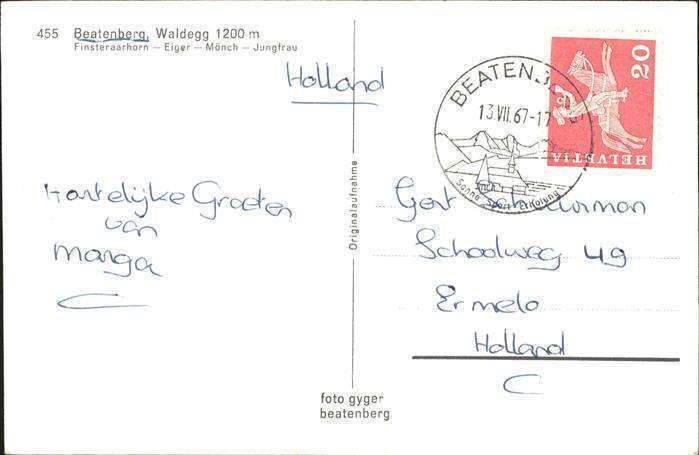 455 Beatenberg, Waldegg 1200 m
Finsteraarhorn – Eiger – Mönch – Jungfrau
Holland
BEATENBERG
13.VII.67-17
Sonne Sport Erholung
20
HELVETIA
Hartelijke Groeten
van
Marga
Originalaufnahme
Gert Schuurman
Schoolweg 49
Ermelo
Holland
foto gyger
beatenberg